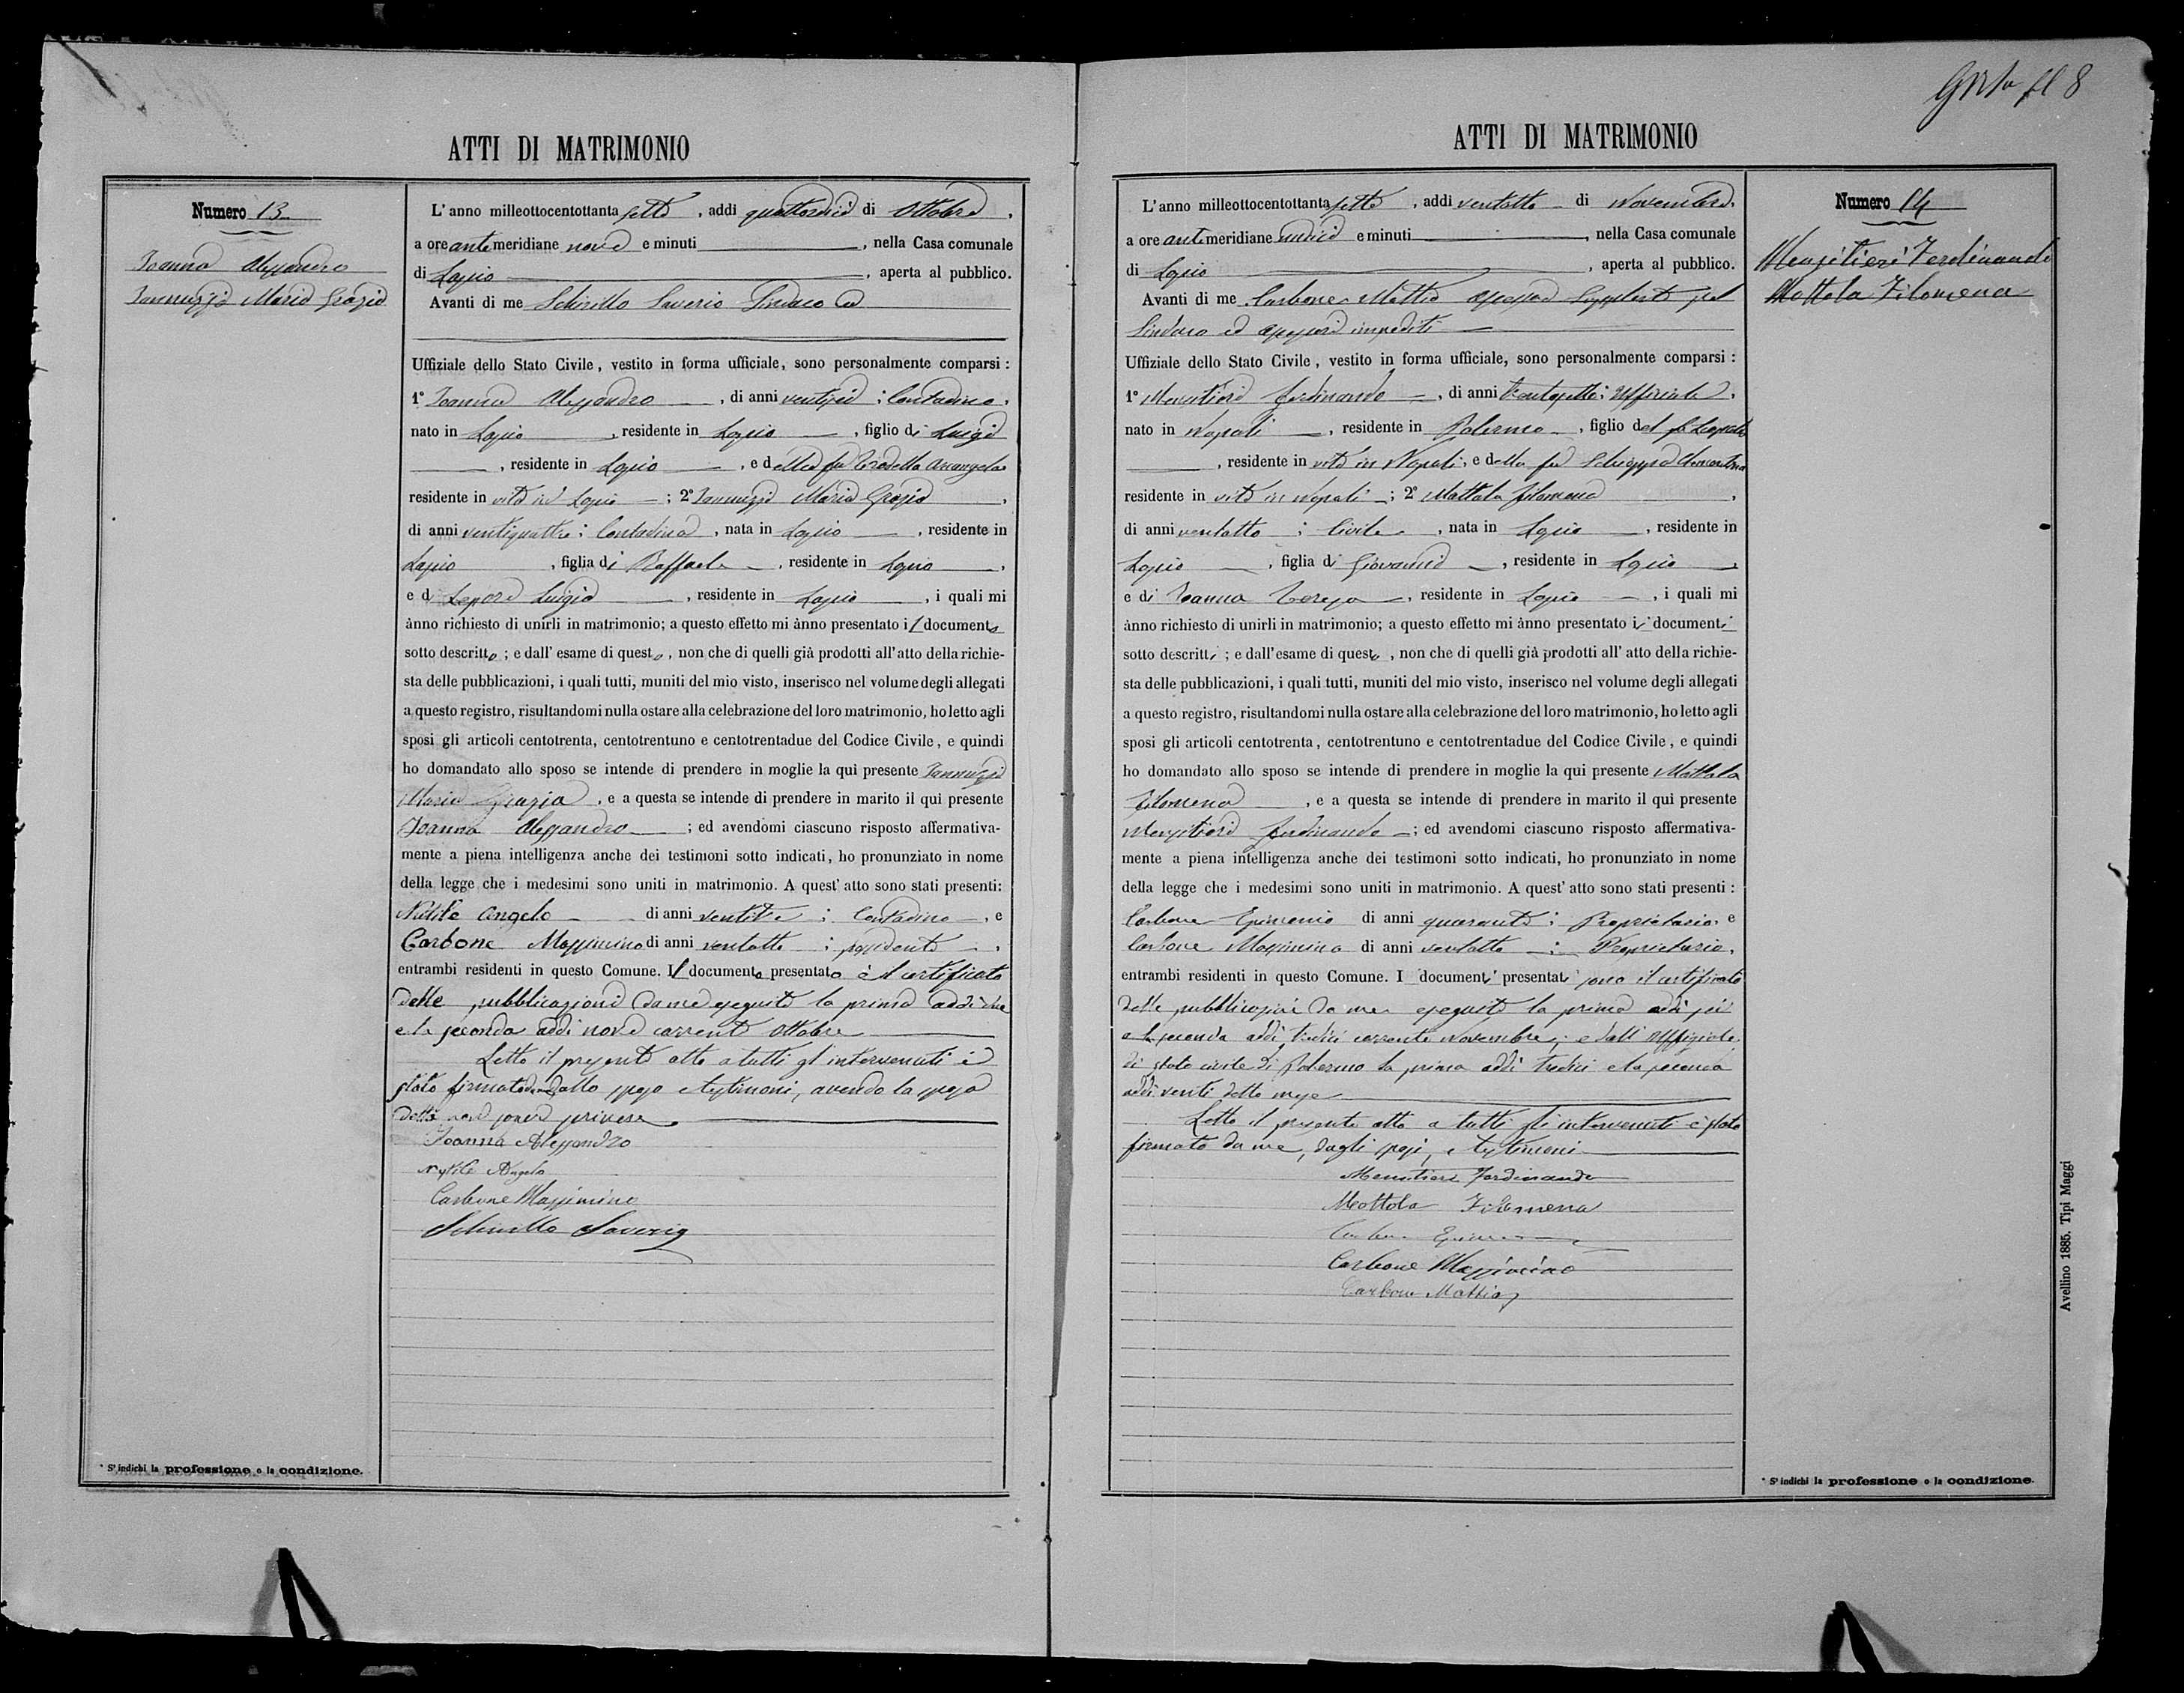 fl 8
ATTI DI MATRIMONIO
Numero 13
Ioanna Alessandro
Iannuzzi Maria Grazia
L'anno milleottocentottanta sette, addi quattordici di Ottobre,
a ore antimeridiane nove e minuti , nella Casa comunale
di Lapio , aperta al pubblico.
Avanti di me Schirillo Saverio Sindaco ed
Uffiziale dello Stato Civile, vestito in forma ufficiale, sono personalmente comparsi:
1° Ioanna Alessandro , di anni ventisei; Contadino,
nato in Lapio , residente in Lapio , figlio di Luigi
, residente in Lapio , e della fu Troisella Arcangela
residente in vita in Lapio ; 2° Iannuzzi Maria Grazia ,
di anni ventiquattro; Contadina , nata in Lapio , residente in
Lapio , figlia di Raffaele , residente in Lapio ,
e di Lepore Luigia , residente in Lapio , i quali mi
ànno richiesto di unirli in matrimonio; a questo effetto mi ànno presentato il documento
sotto descritto; e dall'esame di questo, non che di quelli già prodotti all'atto della richie-
sta delle pubblicazioni, i quali tutti, muniti del mio visto, inserisco nel volume degli allegati
a questo registro, risultandomi nulla ostare alla celebrazione del loro matrimonio, ho letto agli
sposi gli articoli centotrenta, centotrentuno e centotrentadue del Codice Civile, e quindi
ho domandato allo sposo se intende di prendere in moglie la qui presente Iannuzzi
Maria Grazia , e a questa se intende di prendere in marito il qui presente
Ioanna Alessandro ; ed avendomi ciascuno risposto affermativa-
mente a piena intelligenza anche dei testimoni sotto indicati, ho pronunziato in nome
della legge che i medesimi sono uniti in matrimonio. A quest'atto sono stati presenti:
Angelo di anni ventitre ; Contadino , e
Carbone Massimino di anni ventotto ; possidente ,
entrambi residenti in questo Comune. Il documento presentato è il certificato
delle pubblicazioni da me eseguite la prima addì due
e la seconda addì nove corrente Ottobre
Letto il presente atto a tutti gl'intervenuti è
stato firmato da me, dallo sposo e testimoni, avendo la sposa
detto non sapere scrivere
Ioanna Alessandro
Angelo
Carbone Massimino
Schirillo Saverio
* S'indichi la professione o la condizione.
ATTI DI MATRIMONIO
Numero 14
Mensitieri Ferdinando
Mottola Filomena
L'anno milleottocentottanta sette, addi ventotto di Novembre,
a ore antimeridiane undici e minuti , nella Casa comunale
di Lapio , aperta al pubblico.
Avanti di me Carbone Mattia Assessore Supplente pel
Sindaco ed assessori impediti
Uffiziale dello Stato Civile, vestito in forma ufficiale, sono personalmente comparsi:
1° Mensitieri Ferdinando , di anni trentasette; Uffiziale,
nato in Napoli , residente in Palermo , figlio del fu Leopoldo
, residente in vita in Napoli, e della fu
residente in vita in Napoli ; 2° Mottola Filomena ,
di anni ventotto ; Civile , nata in Lapio , residente in
Lapio , figlia di Giovanni , residente in Lapio ,
e di Ioanna Teresa , residente in Lapio , i quali mi
ànno richiesto di unirli in matrimonio; a questo effetto mi ànno presentato i documenti
sotto descritti; e dall'esame di questi, non che di quelli già prodotti all'atto della richie-
sta delle pubblicazioni, i quali tutti, muniti del mio visto, inserisco nel volume degli allegati
a questo registro, risultandomi nulla ostare alla celebrazione del loro matrimonio, ho letto agli
sposi gli articoli centotrenta, centotrentuno e centotrentadue del Codice Civile, e quindi
ho domandato allo sposo se intende di prendere in moglie la qui presente Mottola
Filomena , e a questa se intende di prendere in marito il qui presente
Mensitieri Ferdinando ; ed avendomi ciascuno risposto affermativa-
mente a piena intelligenza anche dei testimoni sotto indicati, ho pronunziato in nome
della legge che i medesimi sono uniti in matrimonio. A quest'atto sono stati presenti:
Carbone Epimenio di anni quaranta; Proprietario, e
Carbone Massimino di anni ventotto ; Proprietario,
entrambi residenti in questo Comune. I documenti presentati sono il certificato
delle pubblicazioni da me eseguite la prima addì sei
e la seconda addì tredici corrente Novembre; e dall'Uffiziale
di stato civile di Palermo la prima addì tredici e la seconda
addì venti detto mese
Letto il presente atto a tutti gli intervenuti è stato
firmato da me, dagli sposi, e testimoni
Mensitieri Ferdinando
Mottola Filomena
Carbone Epimenio
Carbone Massimino
Carbone Mattia
* S'indichi la professione o la condizione.
Avellino 1885. Tipi Maggi